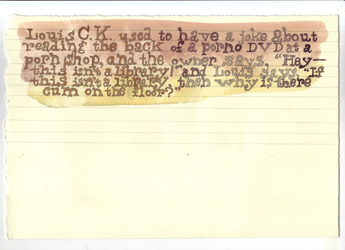 Louis C.K. used to have a joke about
reading the back of a porno DVD at a
porn shop, and the owner says, "Hey—
this isn't a library!" and Louis says, "If
this isn't a library, then why is there
cum on the floor?"